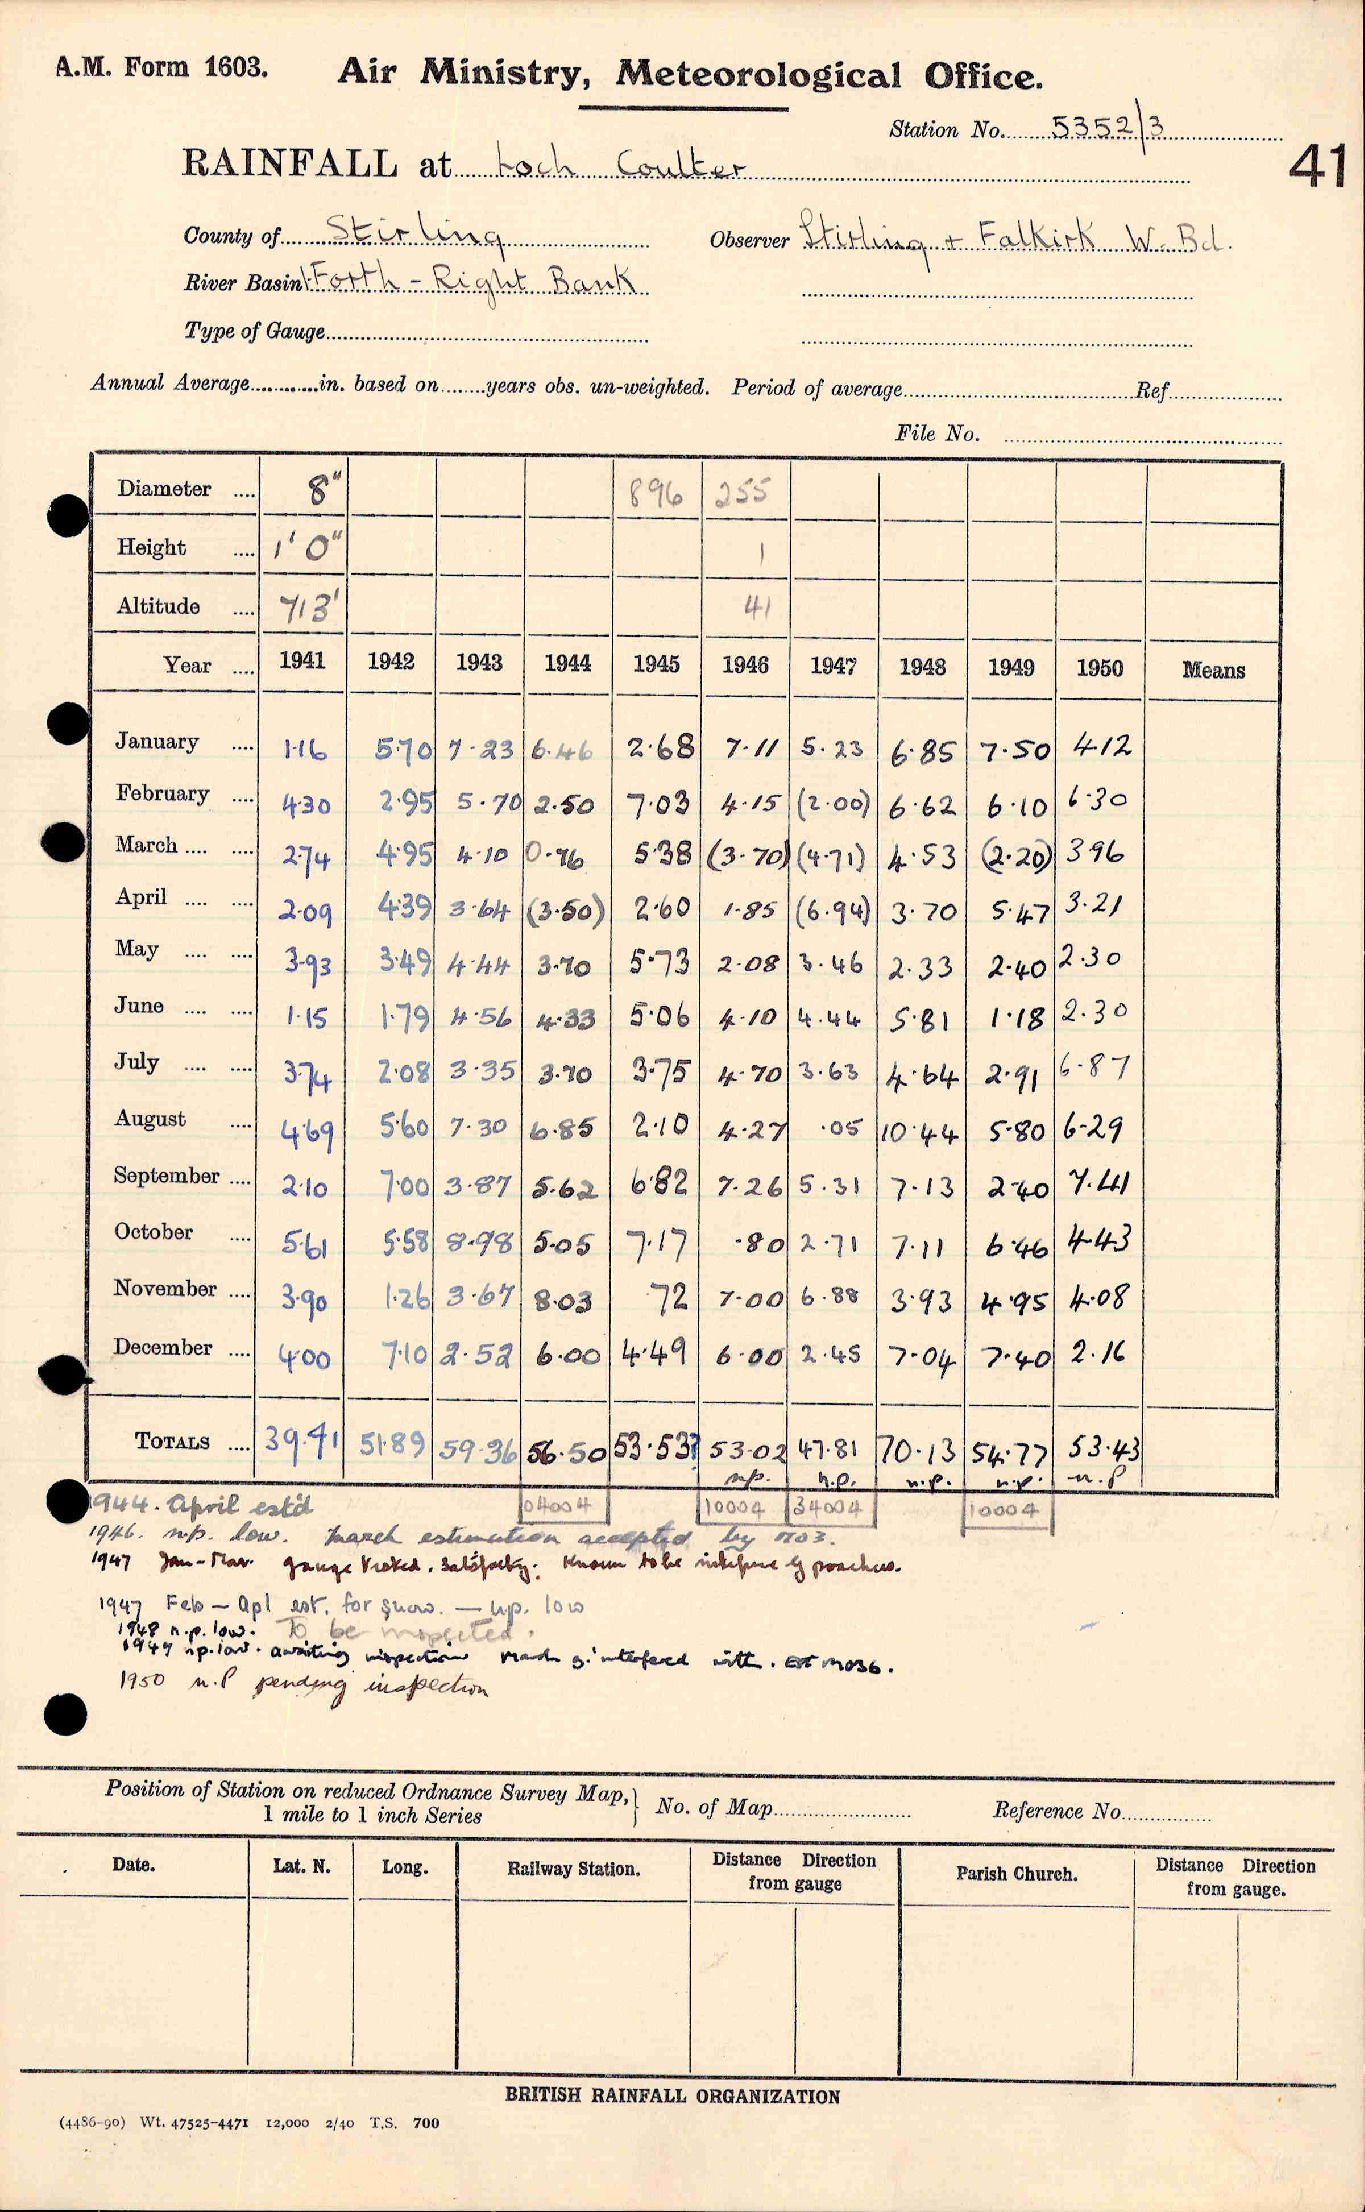 A.M. Form 1603. Air Ministry, Meteorological Office.
Station No. 5352/3
41
RAINFALL at Loch Coulter
County of Stirling Observer Stirling + Falkirk W. Bd.
River Basin Forth - Right Bank
Type of Gauge
Annual Average in. based on years obs. un-weighted. Period of average Ref
File No.
Diameter .... 8" 896 255
Height .... 1' 0" 1
Altitude .... 713' 41
Year .... 1941 1942 1943 1944 1945 1946 1947 1948 1949 1950 Means
January .... 1.16 5.70 7.23 6.46 2.68 7.11 5.23 6.85 7.50 4.12
February .... 4.30 2.95 5.70 2.50 7.03 4.15 (2.00) 6.62 6.10 6.30
March .... .... 2.74 4.95 4.10 0.76 5.38 (3.70) (4.71) 4.53 (2.20) 3.96
April .... .... 2.09 4.39 3.64 (3.50) 2.60 1.85 (6.94) 3.70 5.47 3.21
May .... .... 3.93 3.49 4.44 3.70 5.73 2.08 3.46 2.33 2.40 2.30
June .... .... 1.15 1.79 4.56 4.33 5.06 4.10 4.44 5.81 1.18 2.30
July .... .... 3.74 2.08 3.35 3.70 3.75 4.70 3.63 4.64 2.91 6.87
August .... 4.69 5.60 7.30 6.85 2.10 4.27 .05 10.44 5.80 6.29
September .... 2.10 7.00 3.87 5.62 6.82 7.26 5.31 7.13 2.40 7.41
October .... 5.61 5.58 8.98 5.05 7.17 .80 2.71 7.11 6.46 4.43
November .... 3.90 1.26 3.67 8.03 .72 7.00 6.88 3.93 4.95 4.08
December .... 4.00 7.10 2.52 6.00 4.49 6.00 2.45 7.04 7.40 2.16
TOTALS .... 39.41 51.89 59.36 56.50 53.53? 53.02 47.81 70.13 54.77 53.43
n.p. n.p. n.p. n.p. n.p
1944. April est'd 04004 10004 34004 10004
1946. n.p. low. March estimation accepted by M03.
1947 Jan-Mar. gauge Known to be
1947 Feb - Apl est. for snow. - n.p. low
1948 n.p. low. To be inspected.
1949 n.p. low. awaiting inspection March interfered with. Est M03b.
1950 n.P pending inspection
Position of Station on reduced Ordnance Survey Map, 1 mile to 1 inch Series } No. of Map Reference No.
Date. Lat. N. Long. Railway Station. Distance Direction from gauge Parish Church. Distance Direction from gauge.
BRITISH RAINFALL ORGANIZATION
(4486-90) Wt. 47525-4471 12,000 2/40 T.S. 700